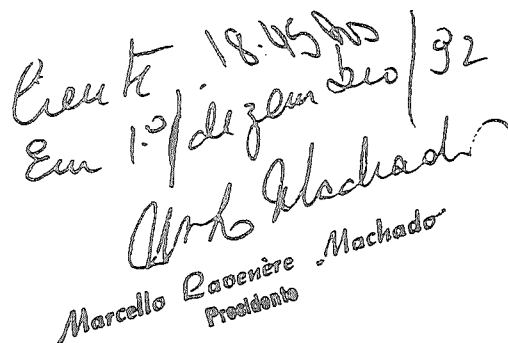 Ciente. 18:45 hs
Em 1º/dezembro/92
Machado
Marcello Lavenère Machado
Presidente